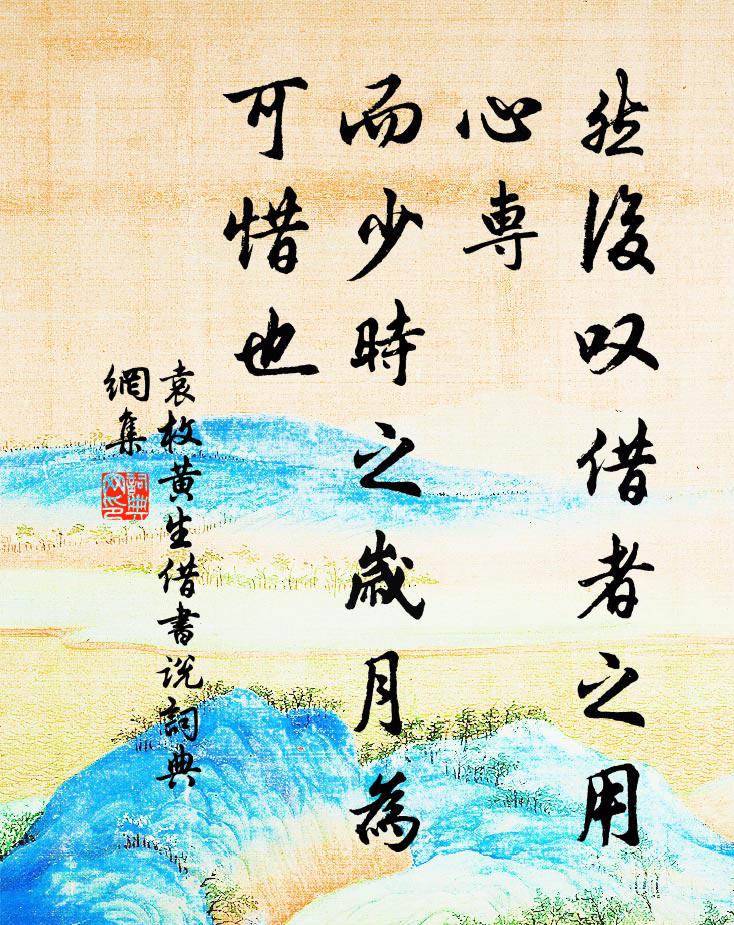 然後叹借者之用
心専
而少時之歲月為
可惜也
袁枚黄生借書说詞典
網集
詞典
网印